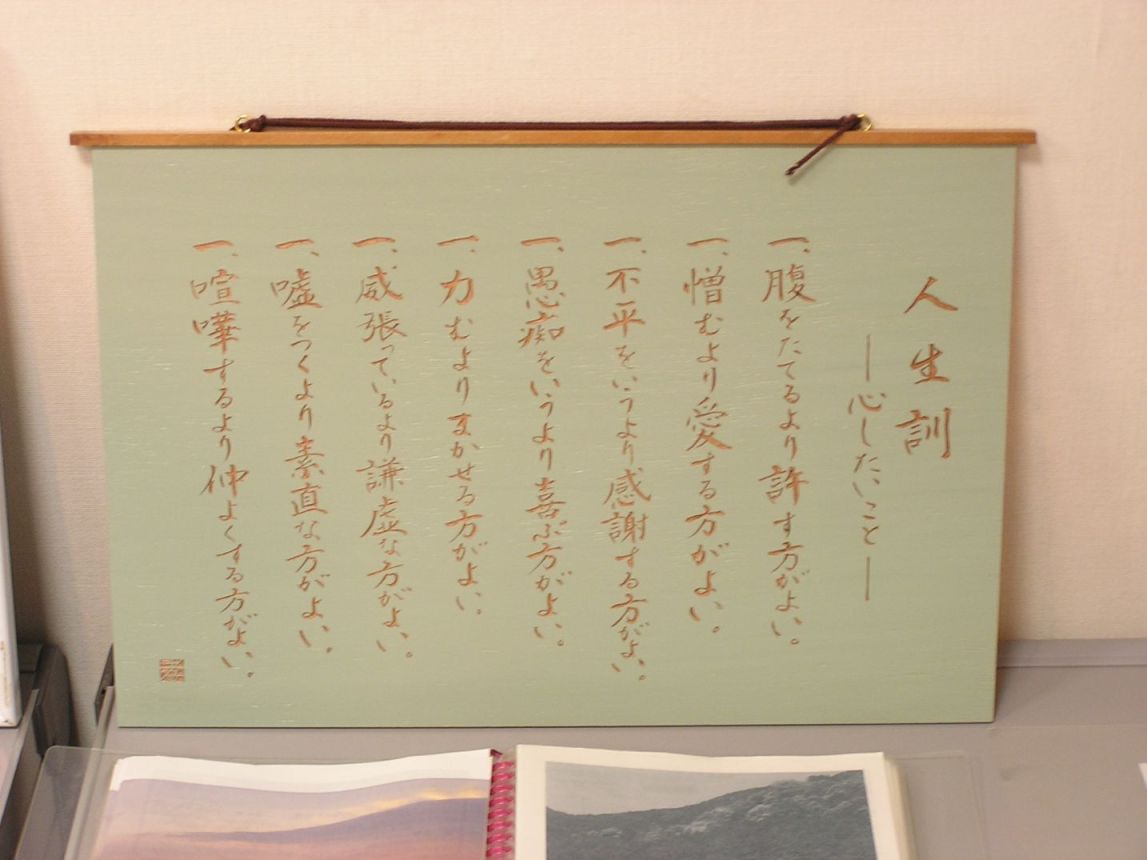 人生訓
―心したいこと―
一、腹をたてるより許す方がよい。
一、憎むより愛する方がよい。
一、不平をいうより感謝する方がよい。
一、愚痴をいうより喜ぶ方がよい。
一、力むよりまかせる方がよい。
一、威張っているより謙虚な方がよい。
一、嘘をつくより素直な方がよい。
一、喧嘩するより仲よくする方がよい。